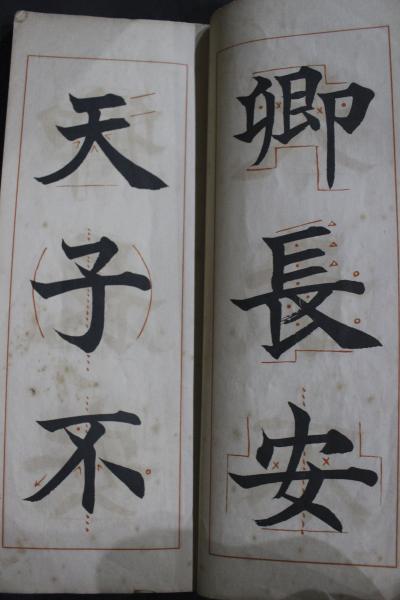 卿長安
天子不